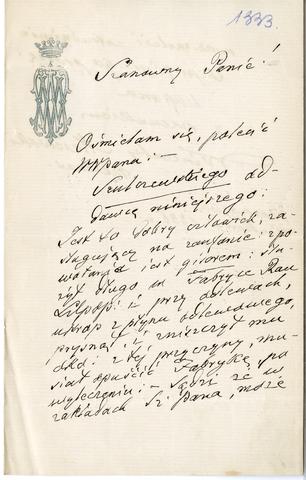 1333.
Szanowny Panie!
Ośmielam się, polecić
WWPana: –
Szulczewskiego od-
dawcę niniejszego:
Jest to dobry człowiek, za-
sługujący na zaufanie: z po-
wołania jest giserem: słu-
żył długo w Fabryce Rau
Lilpop: i przy odlewach,
ukrop z płynu odlewowego,
prysnął i zniszczył mu
oko: z tej przyczyny, mu-
siał opuścić Fabrykę, po
wyleczeniu: – Sądzi że w
zakładach Sz. Pana, może